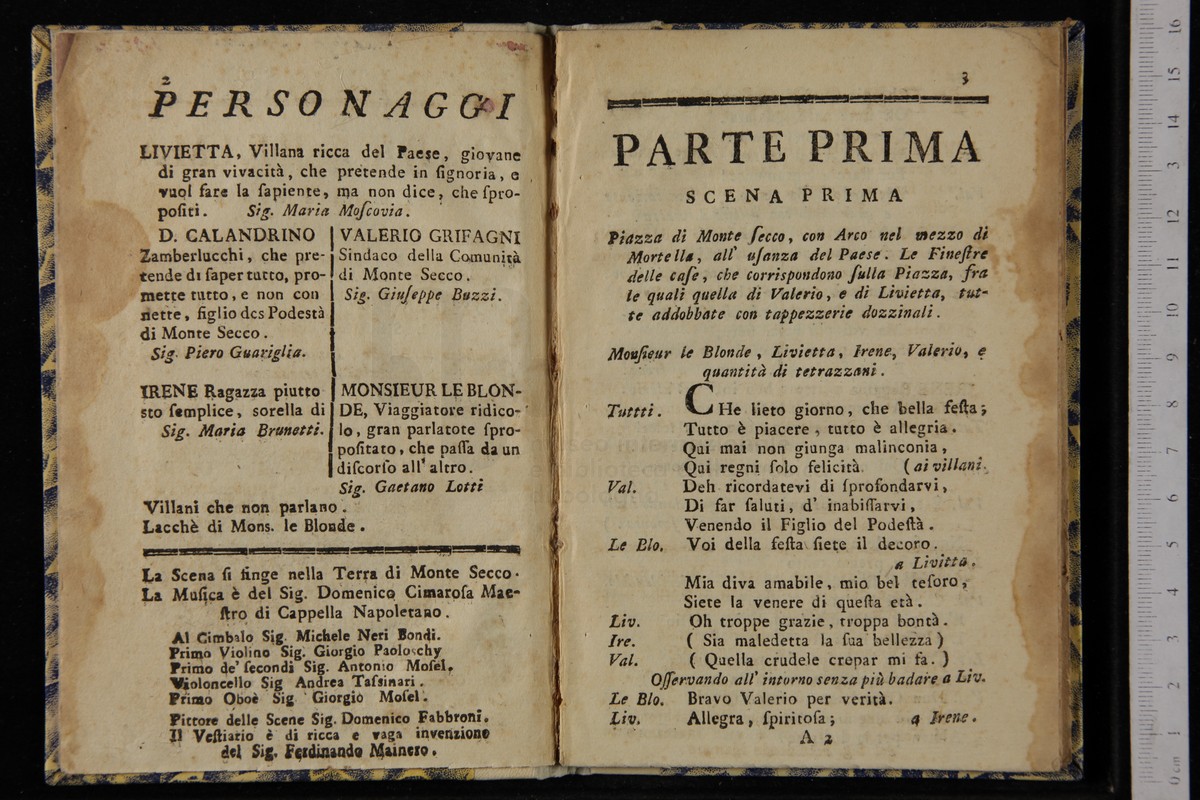 2
PERSONAGGI
LIVIETTA, Villana ricca del Paese, giovane
di gran vivacità, che pretende in ſignoria, e
vuol fare la ſapiente, ma non dice, che ſpro-
poſiti. Sig. Maria Moſcovia.
D. CALANDRINO
Zamberlucchi, che pre-
tende di ſaper tutto, pro-
mette tutto, e non con
nette, figlio dcs Podestà
di Monte Secco.
Sig. Piero Guariglia.
VALERIO GRIFAGNI
Sindaco della Comunità
di Monte Secco.
Sig. Giuſeppe Buzzi.
IRENE Ragazza piutto
sto ſemplice, sorella di
Sig. Maria Brunetti.
MONSIEUR LE BLON-
DE, Viaggiatore ridico-
lo, gran parlatote ſpro-
poſitato, che paſſa da un
diſcorſo all' altro.
Sig. Gaetano Lotti
Villani che non parlano.
Lacchè di Mons. le Blonde.
La Scena ſi finge nella Terra di Monte Secco.
La Muſica è del Sig. Domenico Cimaroſa Mae-
ſtro di Cappella Napoletano.
Al Cimbalo Sig. Michele Neri Bondi.
Primo Violino Sig. Giorgio Paoloschy
Primo de' ſecondi Sig. Antonio Moſel.
Violoncello Sig Andrea Taſsinari.
Primo Oboè Sig. Giorgio Moſel.
Pittore delle Scene Sig. Domenico Fabbroni.
Il Veſtiario è di ricca e vaga invenzione
del Sig. Ferdinando Mainero.
3
PARTE PRIMA
SCENA PRIMA
Piazza di Monte ſecco, con Arco nel mezzo di
Mortella, all' uſanza del Paese. Le Fineſtre
delle caſe, che corrispondono ſulla Piazza, fra
le quali quella di Valerio, e di Livietta, tut-
te addobbate con tappezzerie dozzinali.
Monſieur le Blonde, Livietta, Irene, Valerio, e
quantità di tetrazzani.
Tuttti. CHe lieto giorno, che bella feſta;
Tutto è piacere, tutto è allegria.
Qui mai non giunga malinconia,
Qui regni ſolo felicità. (ai villani.
Val. Deh ricordatevi di ſprofondarvi,
Di far ſaluti, d' inabiſſarvi,
Venendo il Figlio del Podeſtà.
Le Blo. Voi della feſta ſiete il decoro.
a Livitta.
Mia diva amabile, mio bel teſoro,
Siete la venere di queſta età.
Liv. Oh troppe grazie, troppa bontà.
Ire. ( Sia maledetta la ſua bellezza )
Val. ( Quella crudele crepar mi fa. )
Oſſervando all' intorno senza più badare a Liv.
Le Blo. Bravo Valerio per verità.
Liv. Allegra, ſpiritoſa; a Irene.
A 2
0 cm 1 2 3 4 5 6 7 8 9 10 11 12 13 14 15 16